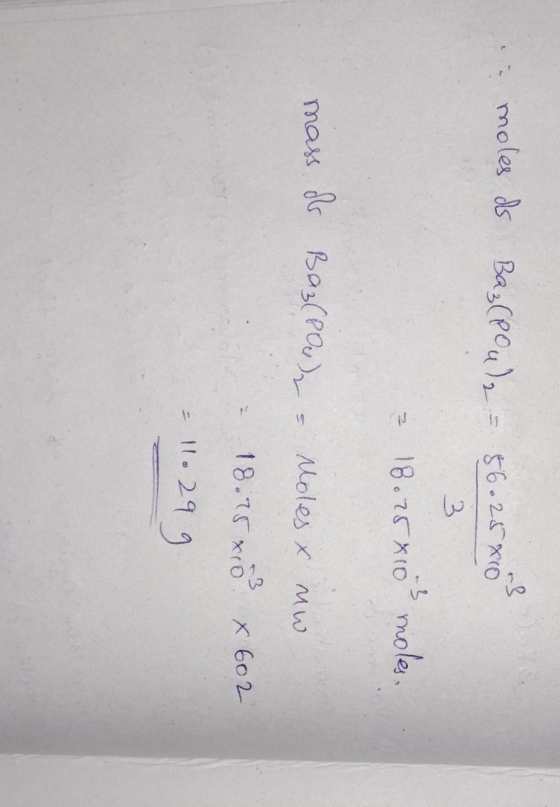 ∴ moles of Ba₃(PO₄)₂ = 56.25×10⁻³
3
= 18.75×10⁻³ moles.
mass of Ba₃(PO₄)₂ = Moles × MW
= 18.75×10⁻³ × 602
= 11.29 g